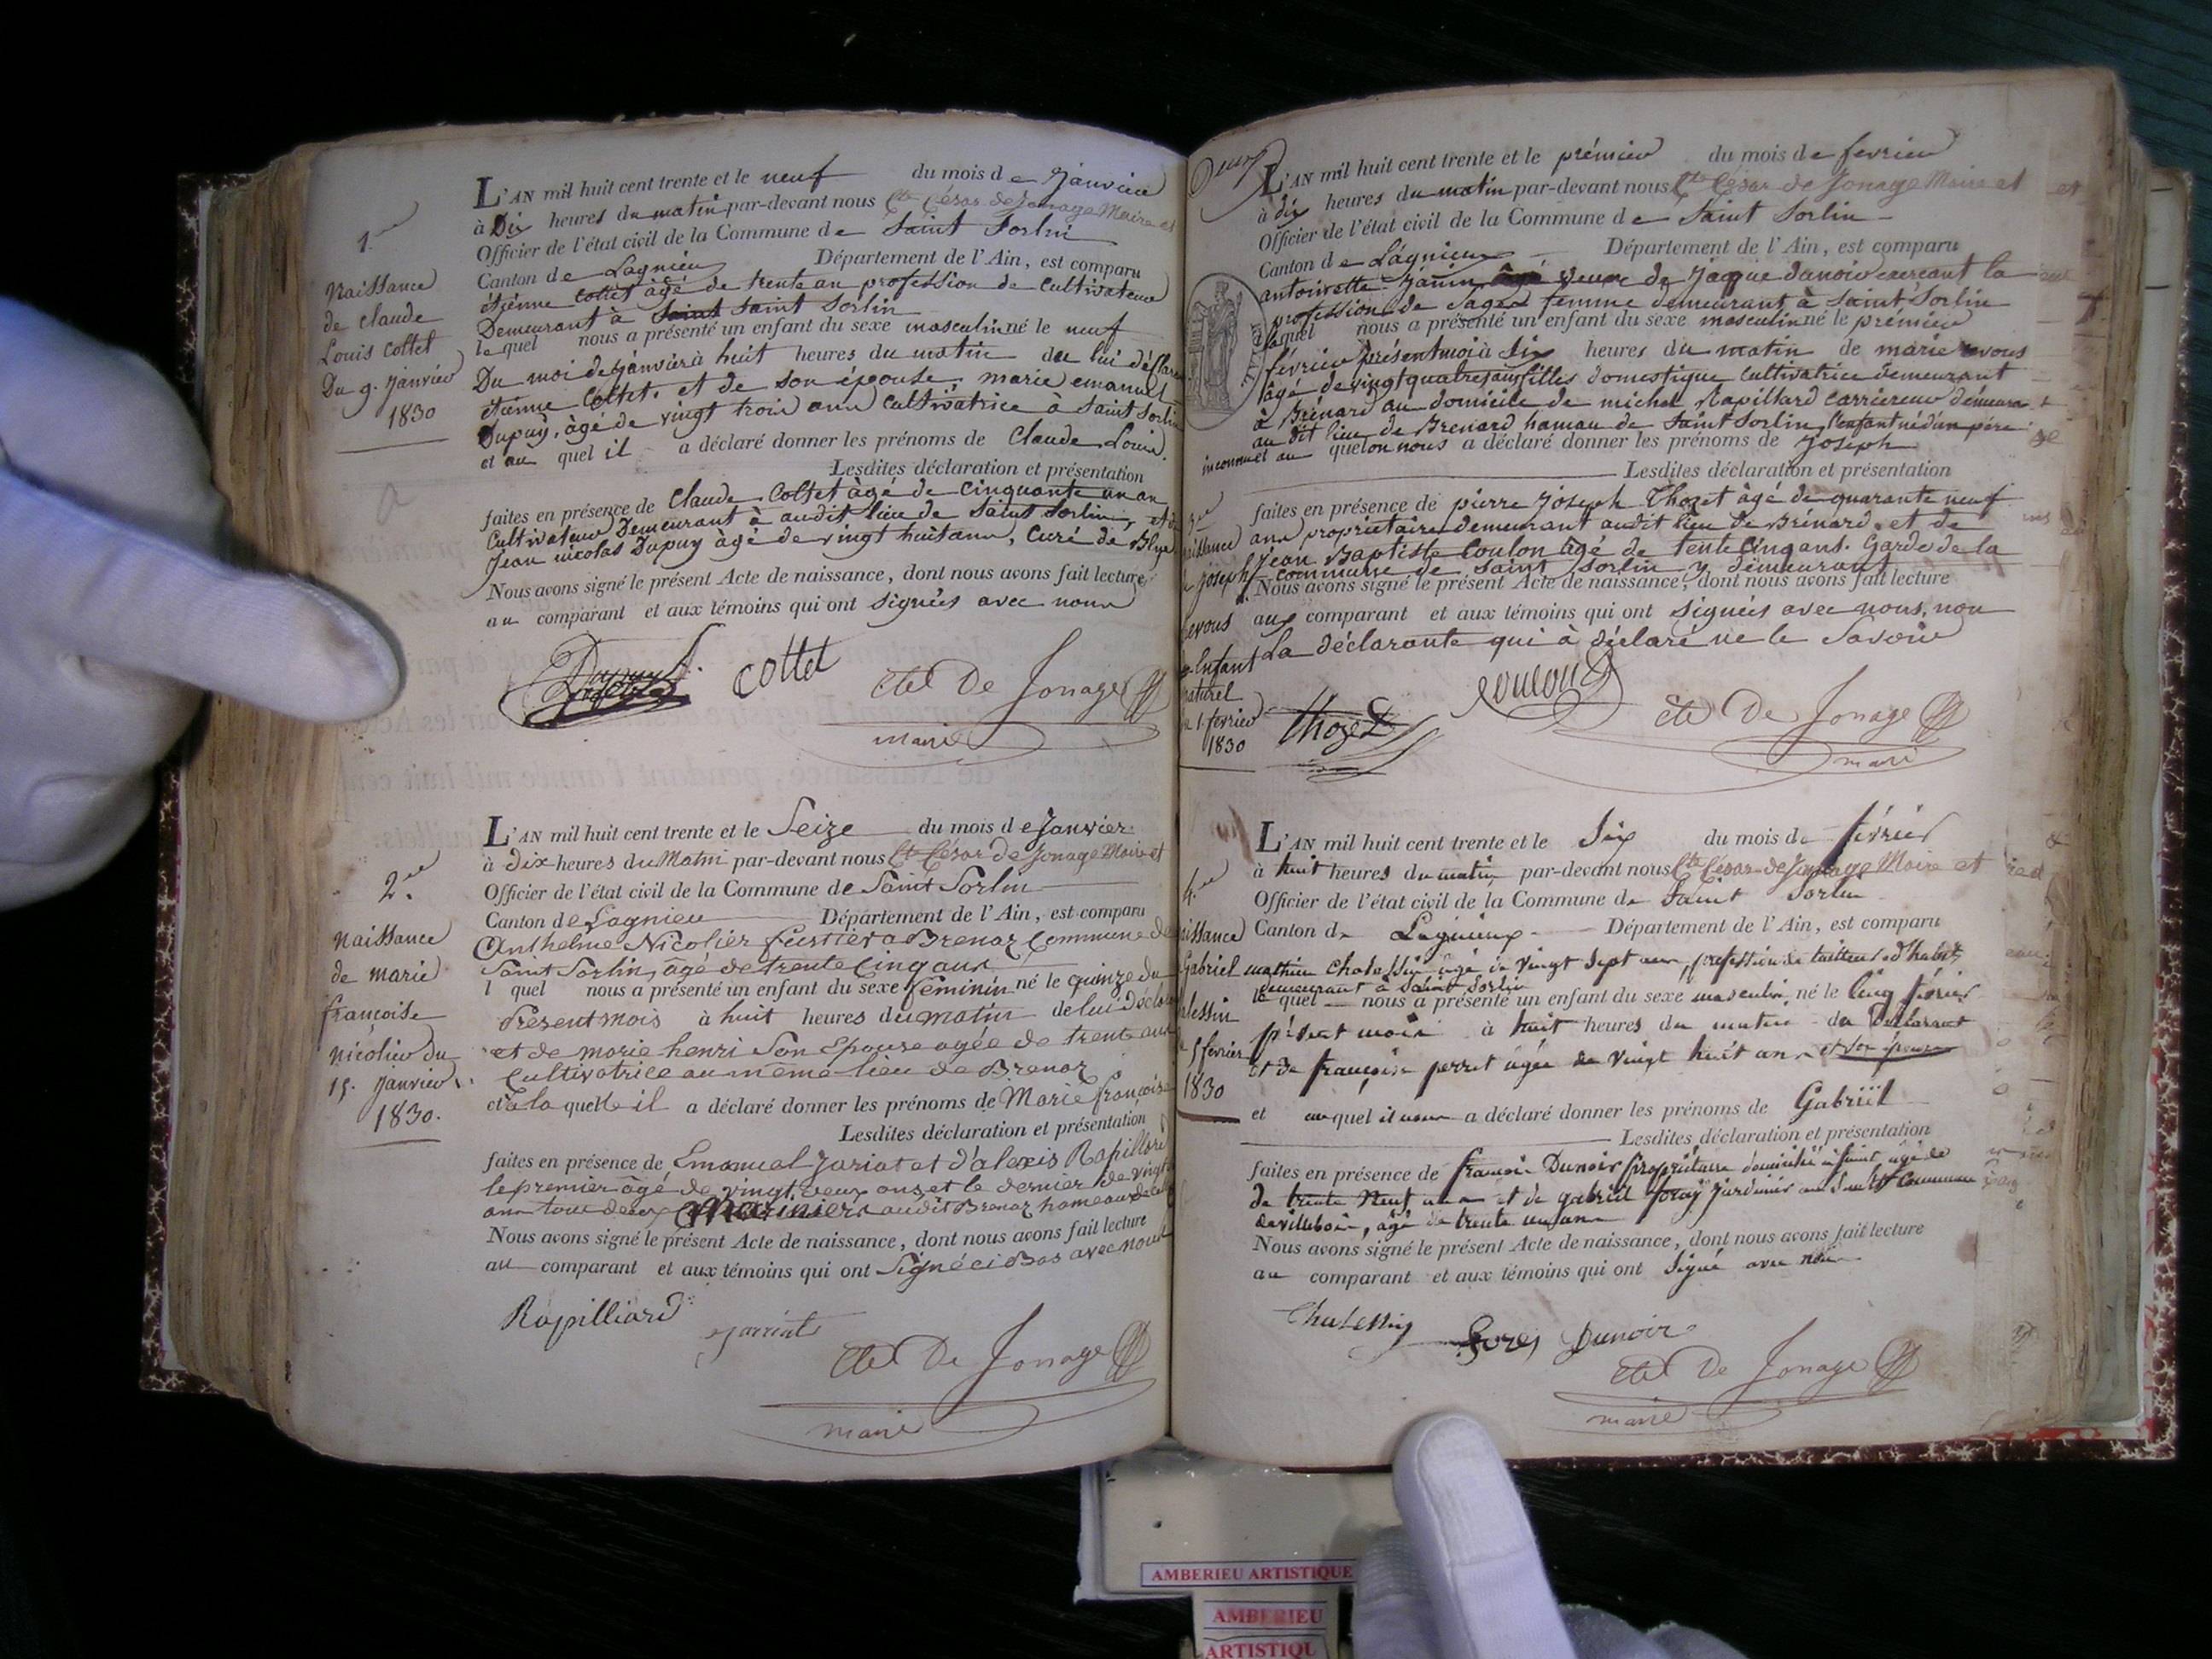 1.re
Naissance
de claude
Louis Cottet
Du 9. janvier
1830
L'AN mil huit cent trente et le neuf du mois de janvier
à Dix heures du matin par-devant nous Cte César de Jonage Maire et
Officier de l'état civil de la Commune de Saint Sorlin
Canton de Lagnieu Département de l'Ain, est comparu
étienne Cottet âgé de trente an profession de Cultivateur
Demeurant à Saint Saint Sorlin
le quel nous a présenté un enfant du sexe masculin né le neuf
Du moi de janvier à huit heures du matin de lui déclare
étienne Cottet. et de son épouse, marie emanuel
Dupuy, âgé de vingt trois ann Cultivatrice à Saint Sorlin
et au quel il a déclaré donner les prénoms de Claude Louis.
Lesdites déclaration et présentation
faites en présence de Claude Cottet âgé de Cinquante un an
Cultivateur Demeurant à audit lieu de Saint Sorlin, et de
Jean nicolas Dupuy âgé de vingt huit ann, Curé de Blye
Nous avons signé le présent Acte de naissance, dont nous avons fait lecture
au comparant et aux témoins qui ont signées avec nous
Dupuy Cottet Cte De Jonage
maire
2.me
Naissance
de marie
françoise
nicolier du
15. janvier
1830.
L'AN mil huit cent trente et le Seize du mois de Janvier
à dix heures du Matin par-devant nous Cte César de Jonage Maire et
Officier de l'état civil de la Commune de Saint Sorlin
Canton de Lagnieu Département de l'Ain, est comparu
Anthelme Nicolier fustier a Brenaz Commune de
Saint Sorlin, âgé de trente Cinq ans
l quel nous a présenté un enfant du sexe féminin né le quinze du
présent mois à huit heures du matin de lui déclare
et de marie henri son Epouse agée de trente ans
Cultivatrice au même lieu de Brenaz
et à la quelle il a déclaré donner les prénoms de Marie françoise
Lesdites déclaration et présentation
faites en présence de Emanuel Jariat et d'alexis Rapillard
le premier âgé de vingt deux ans et le dernier de vingt
ans tous deux Mariniers audit Brenaz hameau de
Nous avons signé le présent Acte de naissance, dont nous avons fait lecture
au comparant et aux témoins qui ont Signé ci Bas avec nous
Rapilliard jarriat
Cte De Jonage
maire
Deux
L'AN mil huit cent trente et le prémier du mois de fevrier
à dix heures du matin par-devant nous Cte César de Jonage Maire et
Officier de l'état civil de la Commune de Saint Sorlin
Canton de Lagnieu Département de l'Ain, est comparu
antoinette Janin âgé veuve de Jaque danoir exercant la
profession de Sage femme demeurant à Saint Sorlin
laquel nous a présenté un enfant du sexe masculin né le prémier
février présent moi à dix heures du matin de marie revous
âgé de vingt quatre ans filles domestique Cultivatrice demeurant
à Brénard au domicile de michel Rapillard carriereur demeura
au dit lieu de Brenard hamau de Saint Sorlin, l'enfant né d'un père
inconnu et au quel on nous a déclaré donner les prénoms de joseph
Lesdites déclaration et présentation
3.me
aissance
joseph
revous
Enfant
naturel
1. fevrier
1830
faites en présence de pierre joseph Thozet âgé de quarante neuf
ann propriétaire demeurant audit lieu de Brénard. et de
Jean Baptiste Coulon âgé de tente Cinq ans. Garde de la
commune de Saint Sorlin y demeurant
Nous avons signé le présent Acte de naissance, dont nous avons fait lecture
aux comparant et aux témoins qui ont signées avec nous, non
La déclarante qui à déclaré ne le Savoir
Thozet Coulon Cte De Jonage
maire
4.me
aissance
Gabriel
alessin
5 fevrier
1830
L'AN mil huit cent trente et le Six du mois de février
à huit heures du matin par-devant nous Cte César de Jonage Maire et
Officier de l'état civil de la Commune de Saint Sorlin
Canton de Lagnieux Département de l'Ain, est comparu
mathieu Chalessin âgé de vingt sept ans, profession de tailleur d'habit,
demeurant à Saint Sorlin
le quel nous a présenté un enfant du sexe masculin né le Cinq février
présent mois à huit heures du matin du déclarant
et de françoise perret âgée de vingt huit ans et son épouse
et au quel il nous a déclaré donner les prénoms de Gabriël
Lesdites déclaration et présentation
faites en présence de françois Dunoir propriétaire âgé de
de trente neuf ans et de gabriel foray jardinier Commune
de villebois, âgé de trente un ans
Nous avons signé le présent Acte de naissance, dont nous avons fait lecture
au comparant et aux témoins qui ont signé avec nous
Chalessin Dunoir
Cte De Jonage
maire
AMBERIEU ARTISTIQUE
AMBERIEU
ARTISTIQU